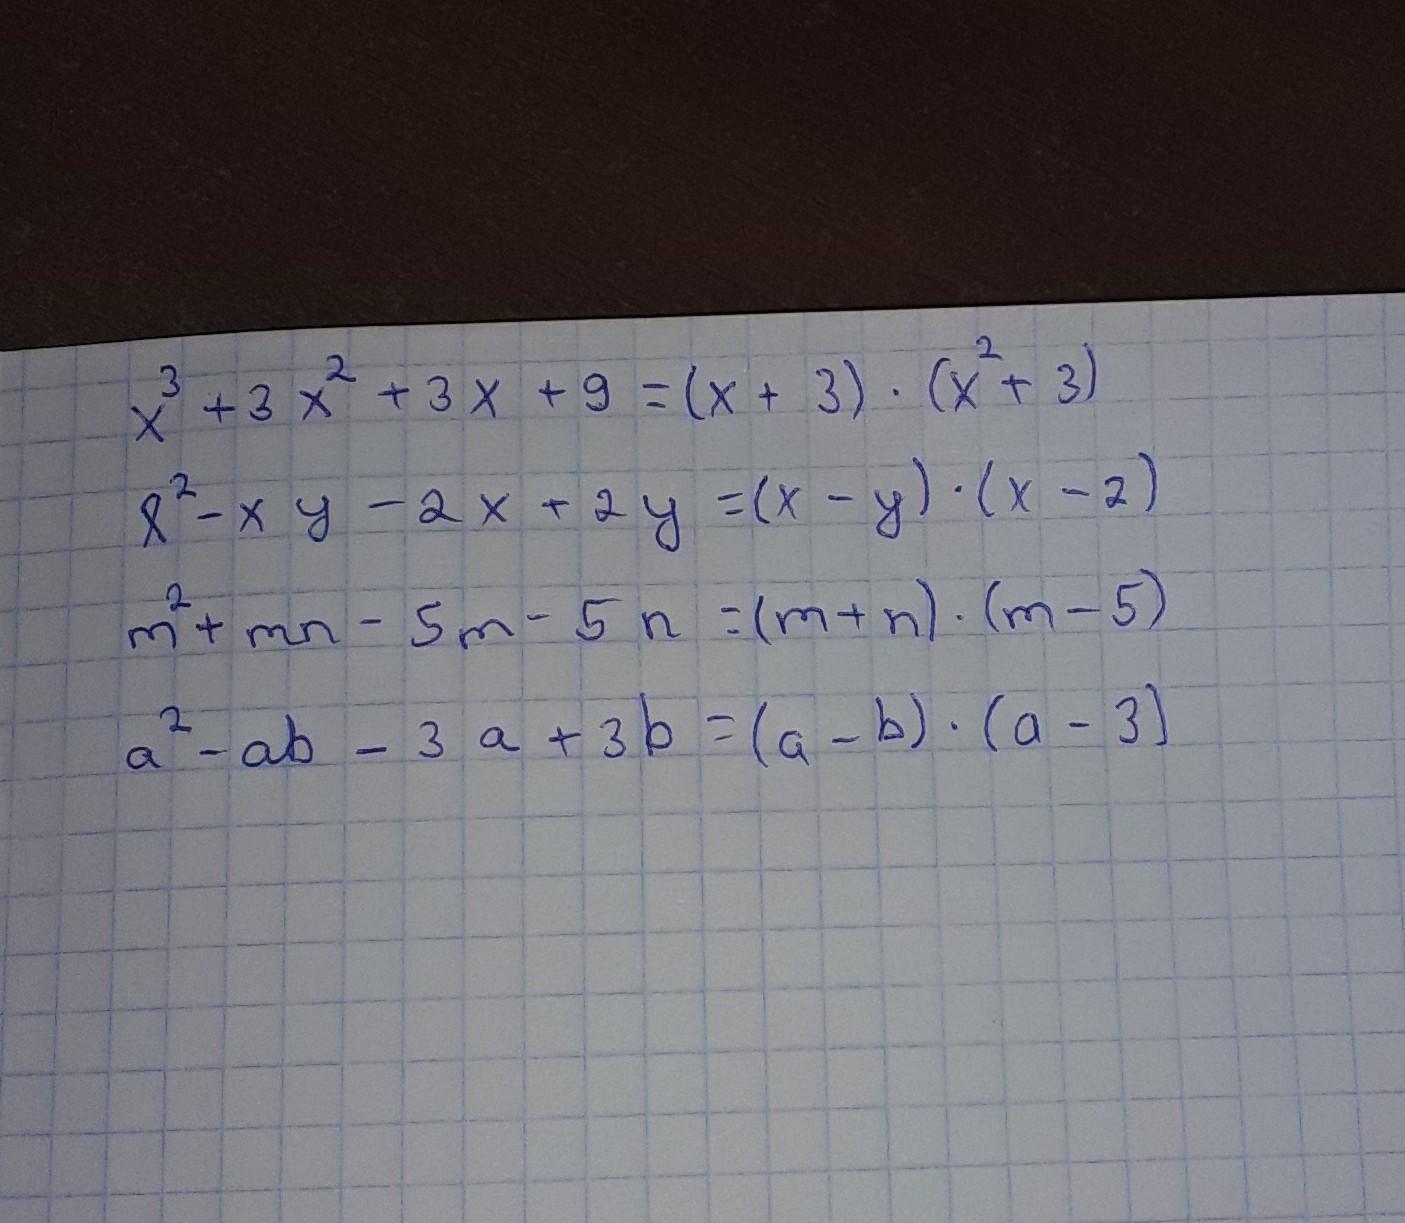 x³ + 3x² + 3x + 9 = (x + 3) · (x² + 3)
x² - xy - 2x + 2y = (x - y) · (x - 2)
m² + mn - 5m - 5n = (m + n) · (m - 5)
a² - ab - 3a + 3b = (a - b) · (a - 3)